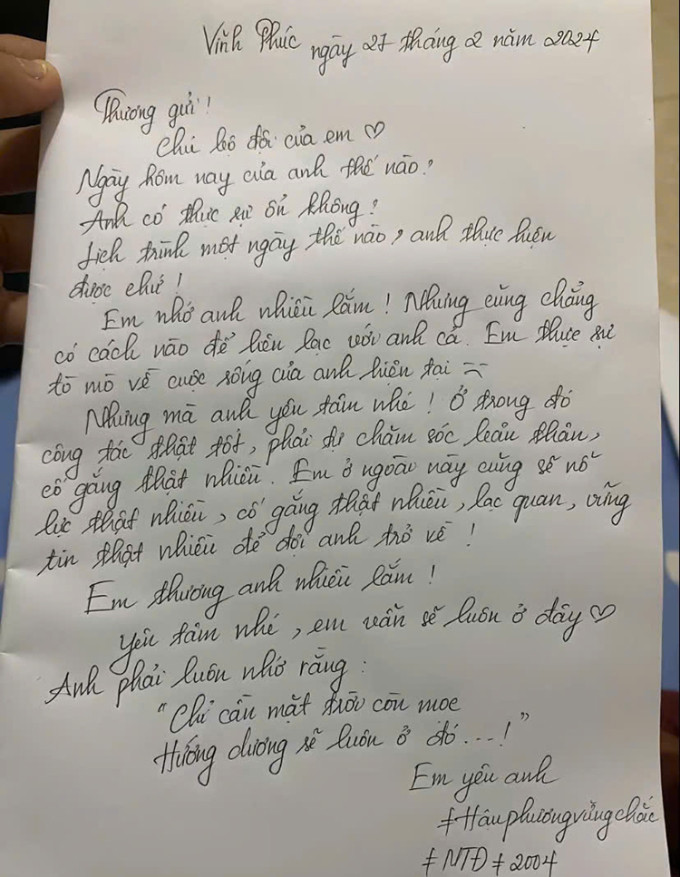 Vĩnh Phúc ngày 27 tháng 2 năm 2024
Thương gửi!
Chú bộ đội của em ♡
Ngày hôm nay của anh thế nào?
Anh có thực sự ổn không?
Lịch trình một ngày thế nào, anh thực hiện
được chứ!
Em nhớ anh nhiều lắm! Nhưng cũng chẳng
có cách nào để liên lạc với anh cả. Em thực sự
tò mò về cuộc sống của anh hiện tại
Nhưng mà anh yên tâm nhé! Ở trong đó
công tác thật tốt, phải tự chăm sóc bản thân,
cố gắng thật nhiều. Em ở ngoài này cũng sẽ nỗ
lực thật nhiều, cố gắng thật nhiều, lạc quan, vững
tin thật nhiều để đợi anh trở về!
Em thương anh nhiều lắm!
Yên tâm nhé, em vẫn sẽ luôn ở đây ♡
Anh phải luôn nhớ rằng:
"Chỉ cần mặt trời còn mọc
Hướng dương sẽ luôn ở đó...!"
Em yêu anh
#Hậuphươngvữngchắc
#NTĐ#2004